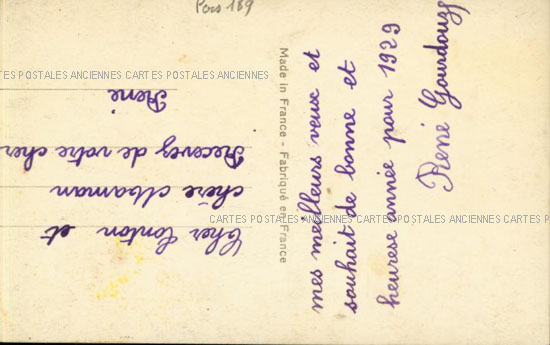 Pors 189
Cher tonton et
chère Maman
Recevez de votre cher
René
mes meilleurs veux et
souhait de bonne et
heurese année pour 1929
René Gourdouze
Made in France - Fabriqué en France
CARTES POSTALES ANCIENNES CARTES POSTALES ANCIENNES CARTES POSTALES ANCIENNES CARTES POSTALES
CARTES POSTALES ANCIENNES CARTES POSTALES ANCIENNES CARTES P